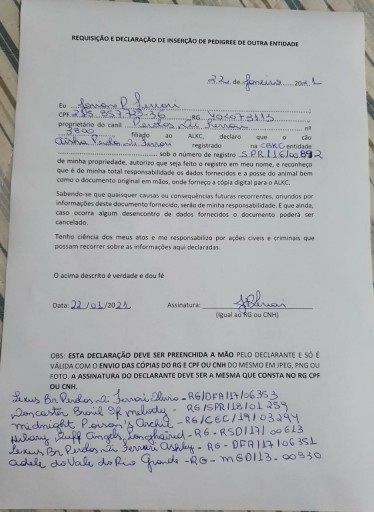 REQUISIÇÃO E DECLARAÇÃO DE INSERÇÃO DE PEDIGREE DE OUTRA ENTIDADE
22 de Janeiro 2021
Eu
CPF RG
proprietário do canil Perdos Di Ferrari nº
3800 filiado ao ALKC, declaro que o cão
Perdos Di Ferrari registrado na CBKC entidade
sob o número de registro
de minha propriedade, autorizo que seja feito o registro em meu nome, e reconheço
que é de minha total responsabilidade os dados fornecidos e a posse do animal bem
como o documento original em mãos, onde forneço a cópia digital para o ALKC.
Sabendo-se que quaisquer causas ou consequências futuras recorrentes, oriundos por
informações deste documento fornecido, serão de minha responsabilidade. E que ainda,
caso ocorra algum desencontro de dados fornecidos o documento poderá ser
cancelado.
Tenho ciência dos meus atos e me responsabilizo por ações cíveis e criminais que
possam recorrer as informações aqui declaradas.
O acima descrito é verdade e dou fé
Data: 22/01/2021 Assinatura:
(Igual ao RG ou CNH)
OBS: ESTA DECLARAÇÃO DEVE SER PREENCHIDA A MÃO PELO DECLARANTE E SÓ É
VÁLIDA COM O ENVIO DAS CÓPIAS DO RG E CPF OU CNH DO MESMO EM JPEG, PNG OU
FOTO. A ASSINATURA DO DECLARANTE DEVE SER A MESMA QUE CONSTA NO RG CPF
OU CNH.
Lexus Br Perdos Di Ferrari - RG/DFA/17/06353
Doncaster Brasil melody - RG/SPR/18/01259
midnight - RG/CEC/19/03294
Hilary Ruff Angels Longhaired - RG - RSD/17/00613
Lexus Br Perdos Di Ferrari Ashley - RG - DFA/17/06351
Adele do Vale do Rio Grande - RG - MGD/13-00930